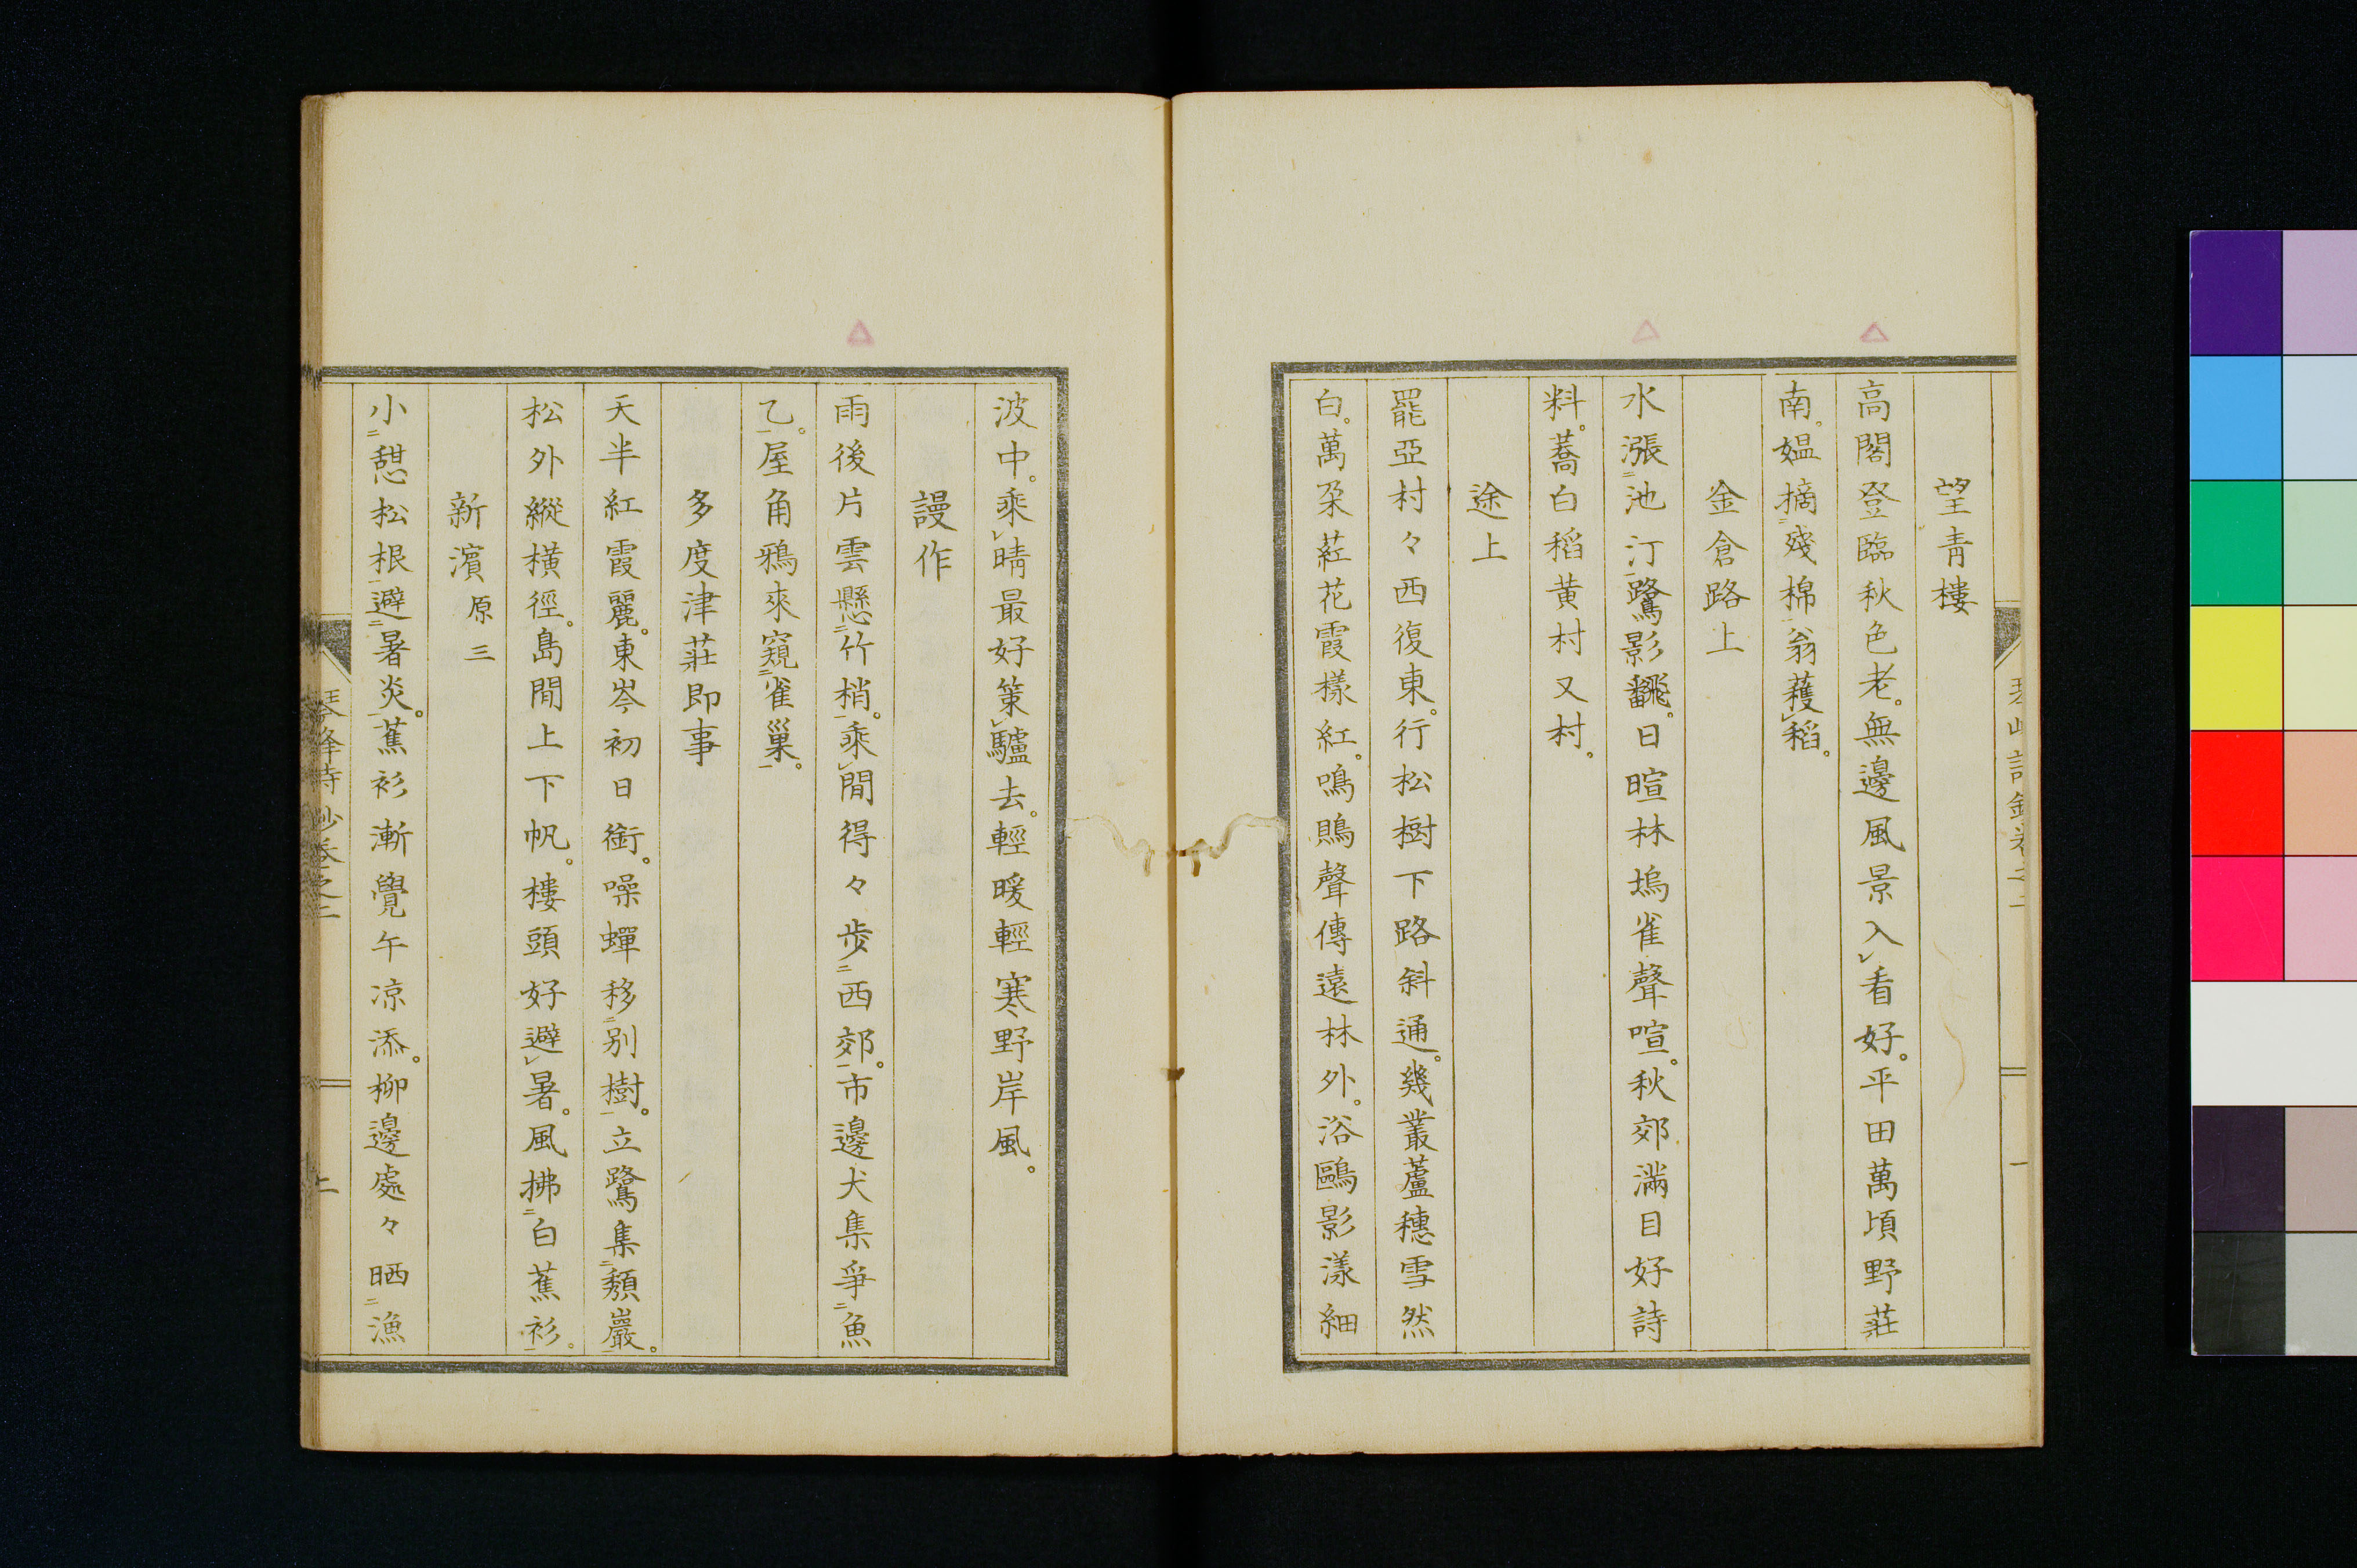 望青樓
高閣登臨秋色老。無邊風景入レ看好。平田萬頃野莊
南。媼摘二殘棉一翁穫レ稻。
金倉路上
水漲二池汀一鷺影飜。日暄林塢雀聲喧。秋郊滿目好詩
料。蕎白稻黄村又村。
途上
罷亞村々西復東。行松樹下路斜通。幾叢蘆穗雪然
白。萬朶葒花霞樣紅。鳴鵙聲傳遠林外。浴鷗影漾細
波中。乘レ晴最好策レ驢去。輕暖輕寒野岸風。
謾作
雨後片雲懸二竹梢一。乘レ閒得々步二西郊一。市邊犬集爭二魚
乙一。屋角鴉來窺二雀巢一。
多度津莊即事
天半紅霞麗。東岑初日銜。噪蟬移二别樹一。立鷺集二頽巖一。
松外縱橫徑。島間上下帆。樓頭好避レ暑。風拂二白蕉衫一。
新濱 原三
小二憇松根一避二暑炎一。蕉衫漸覺午凉添。柳邊處々晒二漁
琴峰詩鈔卷之二